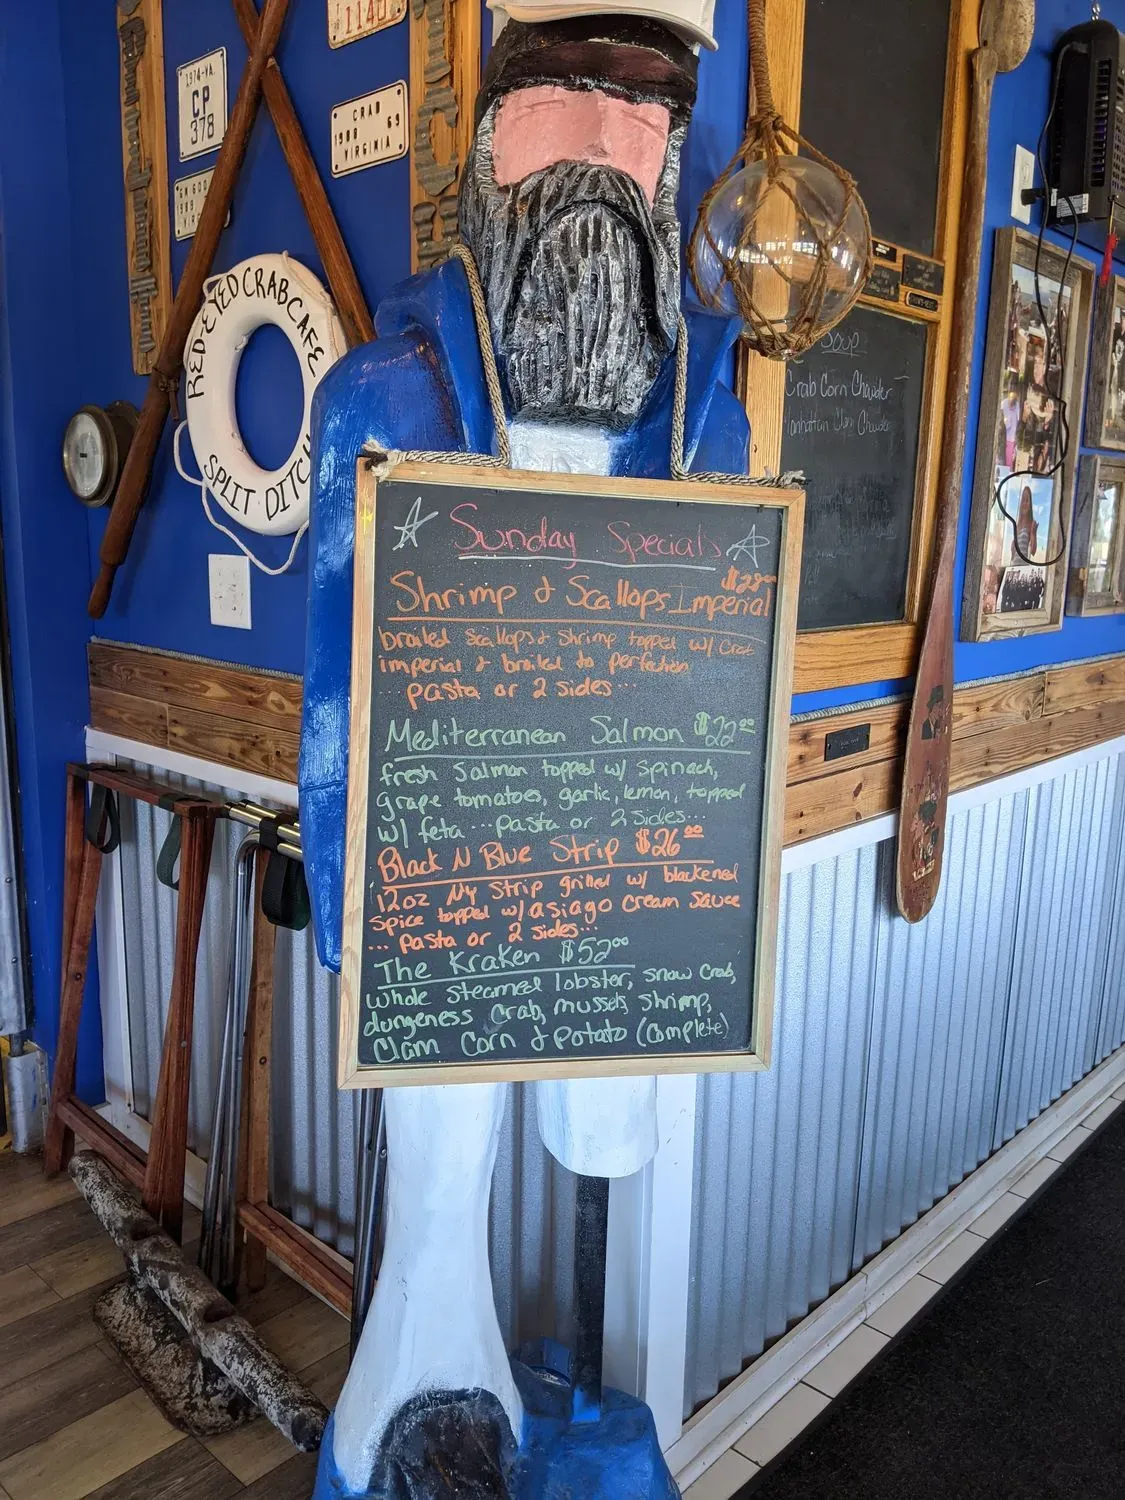 1140
1974-VA.
CP
378
CRAB
1988 69
VIRGINIA
RED EYED CRAB CAFE
SPLIT DITCH
Soup
Crab Corn Chowder
Manhattan Clam Chowder
Sunday Specials
$28.00
Shrimp & Scallops Imperial
broiled scallops & shrimp topped w/ crab
imperial & broiled to perfection
... pasta or 2 sides...
Mediterranean Salmon $22.00
fresh salmon topped w/ spinach,
grape tomatoes, garlic, lemon, topped
w/ feta ... pasta or 2 sides...
Black N Blue Strip $26.00
12oz Ny strip grilled w/ blackened
spice topped w/ asiago cream sauce
... pasta or 2 sides...
The Kraken $52.00
whole steamed lobster, snow crab,
dungeness crab, mussels, shrimp,
Clam Corn & potato (complete)